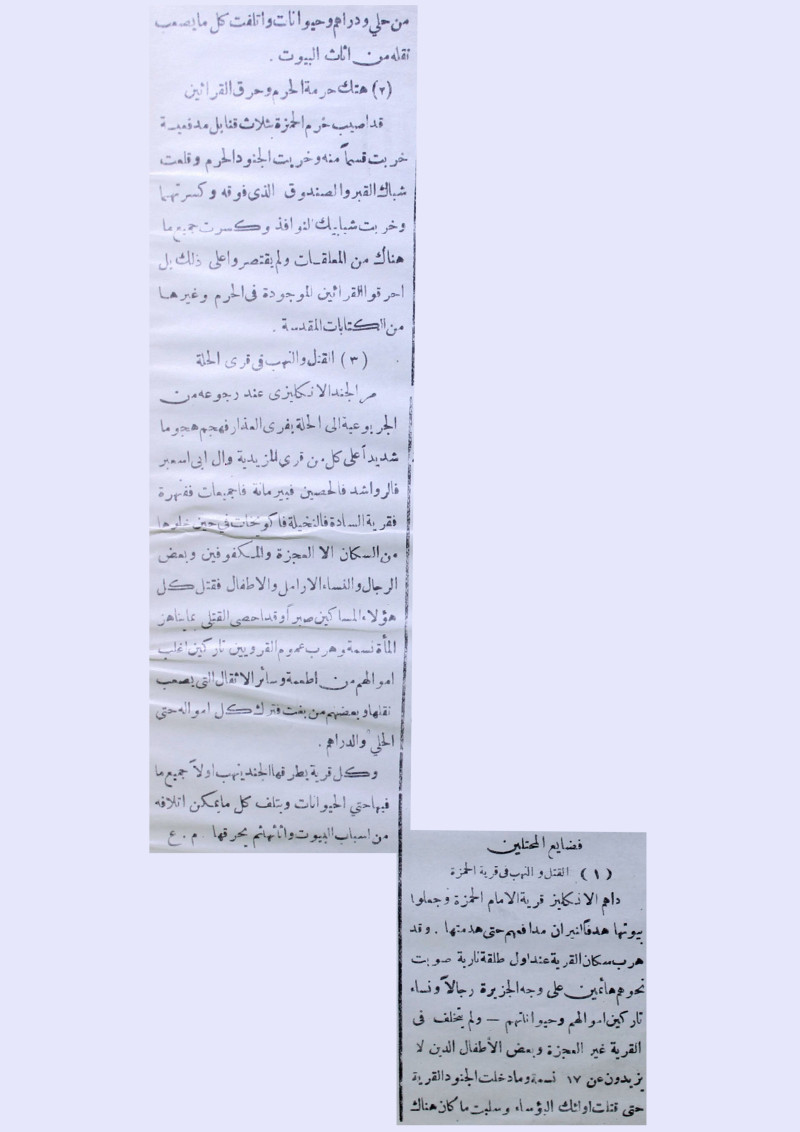 فضايع المحتلين
( ١ ) القتل و النهب فى قرية الحمزة
داهم الانكليز قرية الامام الحمزة وجعلوا
بيوتها هدفاً لنيران مدافعهم حتى هدمتها . وقد
هرب سكان القرية عند اول طلقة نارية صوبت
نحوهم هائمين على وجه الجزيرة رجالاً ونساء
تاركين اموالهم وحيواناتهم — ولم يتخلف فى
القرية غير العجزة وبعض الأطفال الذين لا
يزيدون عن ١٧ نسمة وما دخلت الجنود القرية
حتى قتلت اولئك البؤساء وسلبت ما كان هناك
من حلي ودراهم وحيوانات واتلفت كل ما يصعب
نقله من اثاث البيوت .
(٢) هتك حرمة الحرم وحرق القرائين
قد اصيب حرم الحمزة بثلاث قنابل مدفعية
خربت قسماً منه وخربت الجنود الحرم وقلعت
شباك القبر والصندوق الذى فوقه وكسرتهما
وخربت شبابيك النوافذ وكسرت جميع ما
هناك من المعلقات ولم يقتصروا على ذلك بل
احرقوا القرائين الموجودة فى الحرم وغيرها
من الكتابات المقدسة .
( ٣ ) القتل والنهب فى قرى الحلة
مر الجند الانكليزى عند رجوعه من
الجربوعية الى الحلة بقرى العذار فهجم هجوما
شديداً على كل من قرى المزيدية وال ابى اسعبر
فالرواشد فالحصين فبيرمانة فاجميعات ففنهرة
فقرية السادة فالنخيلة فاكويخات في حين خلوها
من السكان الا العجزة والمكفوفين وبعض
الرجال والنساء الارامل والاطفال فقتل كل
هؤلاء المساكين صبراً وقد احصى القتلى بما يناهز
المأة نسمة وهرب عموم القرويين تاركين اغلب
اموالهم من اطعمة وسائر الاثقال التى يصعب
نقلها وبعضهم من بغت فترك كل امواله حتى
الحلي والدراهم .
وكل قرية يطرقها الجند ينهب اولاً جميع ما
فيها حتي الحيوانات ويتلف كل ما يمكن اتلافه
من اسباب البيوت واثاثها ثم يحرقها م . ع